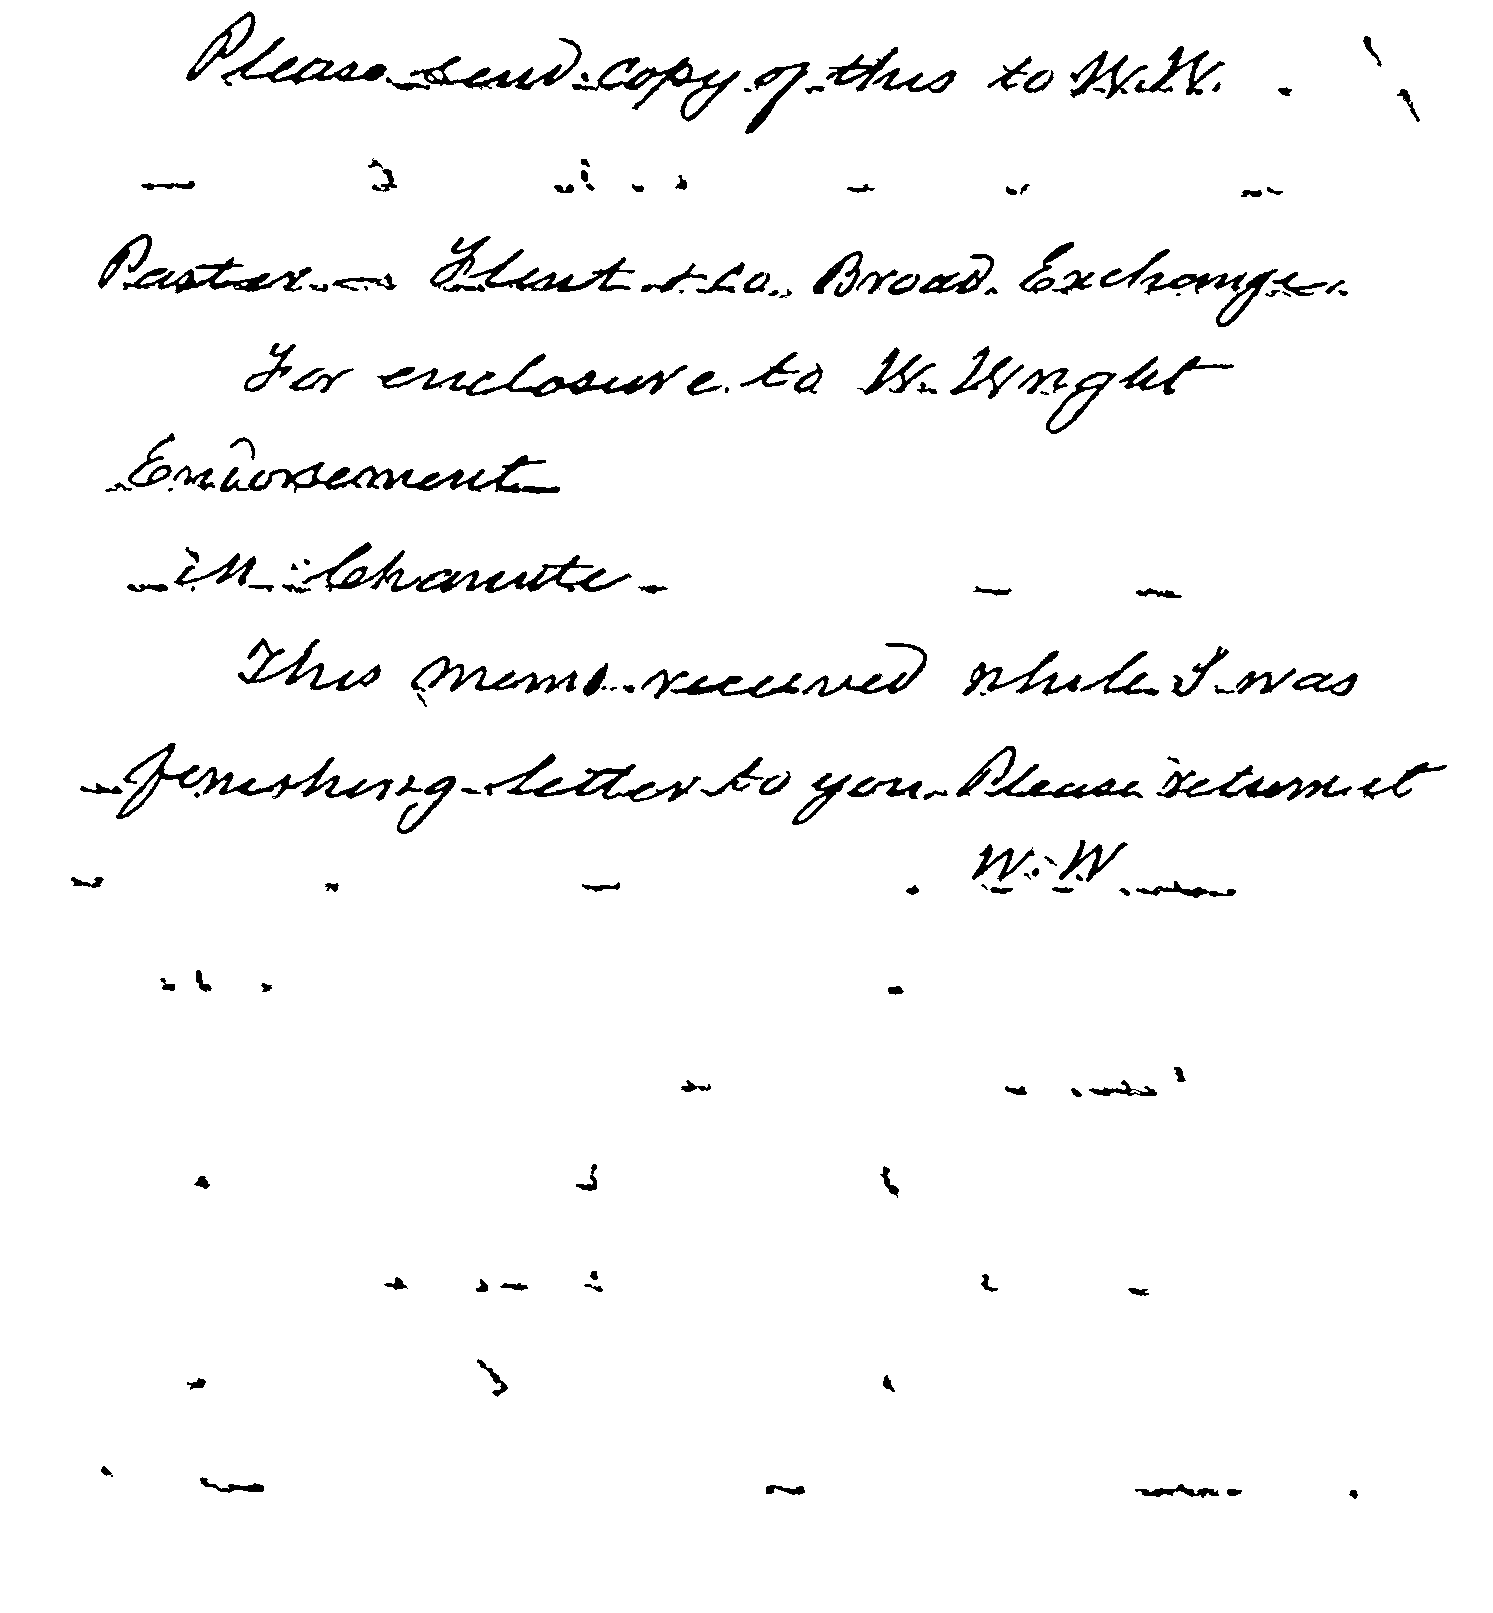 Please send copy of this to W.W.
Paster - Flint & Co. Broad Exchange.
For enclosure to W. Wright
Endorsement
in Chanute
This memo. received while I was
finishing letter to you. Please return it
W. W